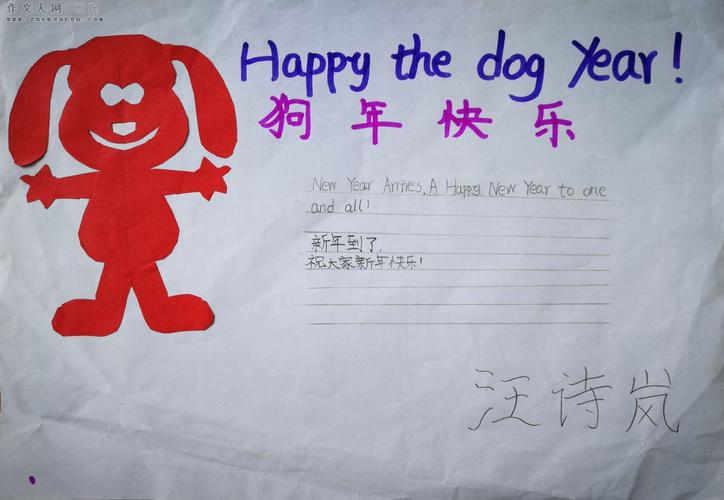 作文人网
www.zuowenren.com
Happy the dog Year!
狗年快乐
New Year Arrives, A Happy New Year to one
and all!
新年到了,
祝大家新年快乐!
汪诗岚